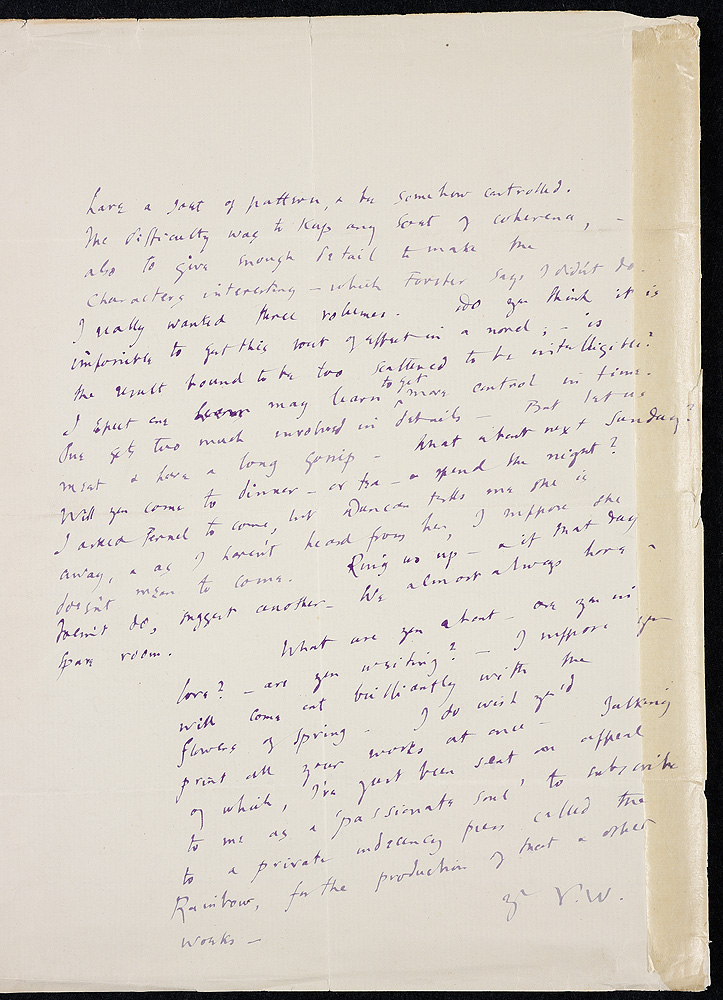 have a sort of pattern, & be somehow controlled.
The difficulty was to keep any sort of coherence, –
also to give enough detail to make the
characters interesting – which Forster says I didn't do.
I really wanted three volumes. Do you think it is
impossible to get this sort of effect in a novel; – is
the result bound to be too scattered to be intelligible?
I expect one may learn to get more control in time.
One gets too much involved in details – But let us
meet & have a long gossip – What about next Sunday?
Will you come to dinner – or tea – or spend the night?
I asked Pernel to come, but Duncan tells me she is
away, & as I haven't heard from her, I suppose she
doesn't mean to come. Ring us up – & if that day
doesn't do, suggest another – We almost always have a
spare room.
What are you about – are you in
love? – are you writing? – I suppose you
will come out brilliantly with the
flowers of spring – I do wish you'd
print all your works at once – Talking
of which, I've just been sent an appeal
to me as a 'passionate soul' to subscribe
to a private indecency press called the
Rainbow, for the production of that & other
works –
yr V.W.